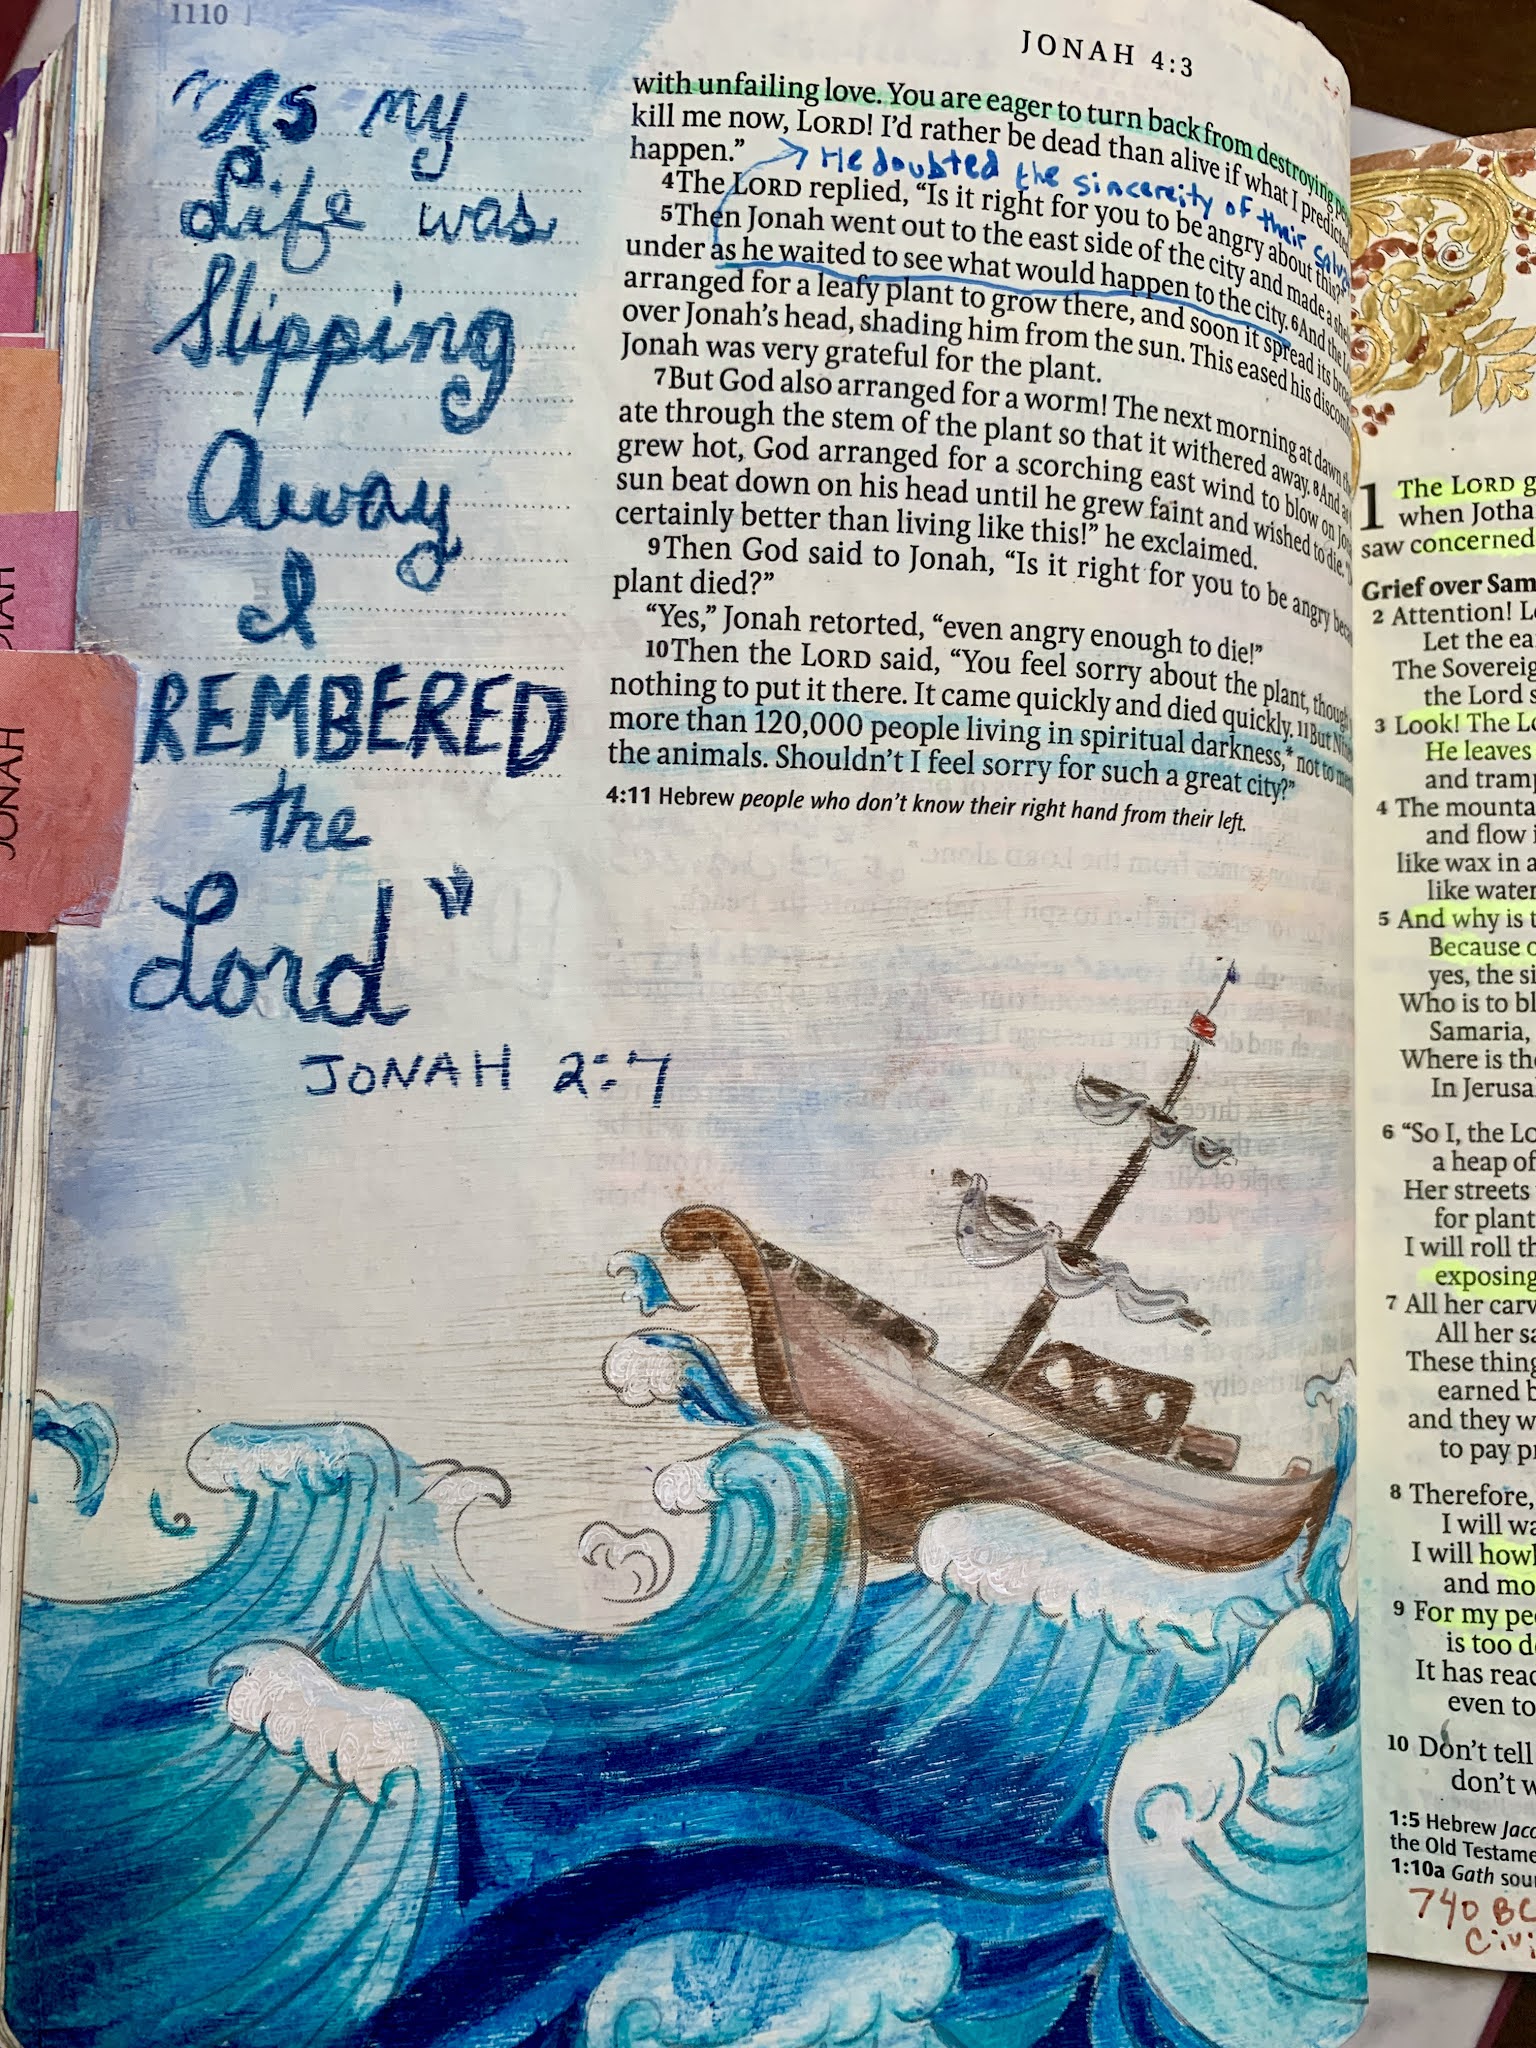 1110
"As my
Life was
Slipping
Away
I
REMBERED
the
Lord"
JONAH 2:7
JONAH
JONAH 4:3
with unfailing love. You are eager to turn back from destroying
kill me now, LORD! I'd rather be dead than alive if what I predicted
happen."
He doubted the sincereity of their
4The LORD replied, "Is it right for you to be angry about this?"
5Then Jonah went out to the east side of the city and made a
under as he waited to see what would happen to the city. 6And the
arranged for a leafy plant to grow there, and soon it spread its
over Jonah's head, shading him from the sun. This eased his
Jonah was very grateful for the plant.
7But God also arranged for a worm! The next morning at dawn
ate through the stem of the plant so that it withered away. 8And
grew hot, God arranged for a scorching east wind to blow on
sun beat down on his head until he grew faint and wished to die.
certainly better than living like this!" he exclaimed.
9Then God said to Jonah, "Is it right for you to be angry
plant died?"
"Yes," Jonah retorted, "even angry enough to die!"
10Then the LORD said, "You feel sorry about the plant, though
nothing to put it there. It came quickly and died quickly. 11But
more than 120,000 people living in spiritual darkness,* not to
the animals. Shouldn't I feel sorry for such a great city?"
4:11 Hebrew people who don't know their right hand from their left.
1 The LORD
when Jotha
saw concerned
Grief over Sam
2 Attention! L
Let the ea
The Sovereig
the Lord
3 Look! The L
He leaves
and tramp
4 The mounta
and flow
like wax in a
like water
5 And why is
Because
yes, the
Who is to bl
Samaria,
Where is the
In Jerusa
6 "So I, the Lo
a heap of
Her streets
for plant
I will roll
exposing
7 All her carv
All her
These thing
earned
and they w
to pay
8 Therefore,
I will wa
I will howl
and mo
9 For my pe
is too
It has reac
even to
10 Don't tell
don't
1:5 Hebrew Jaco
the Old Testame
1:10a Gath
740 BC
Civi